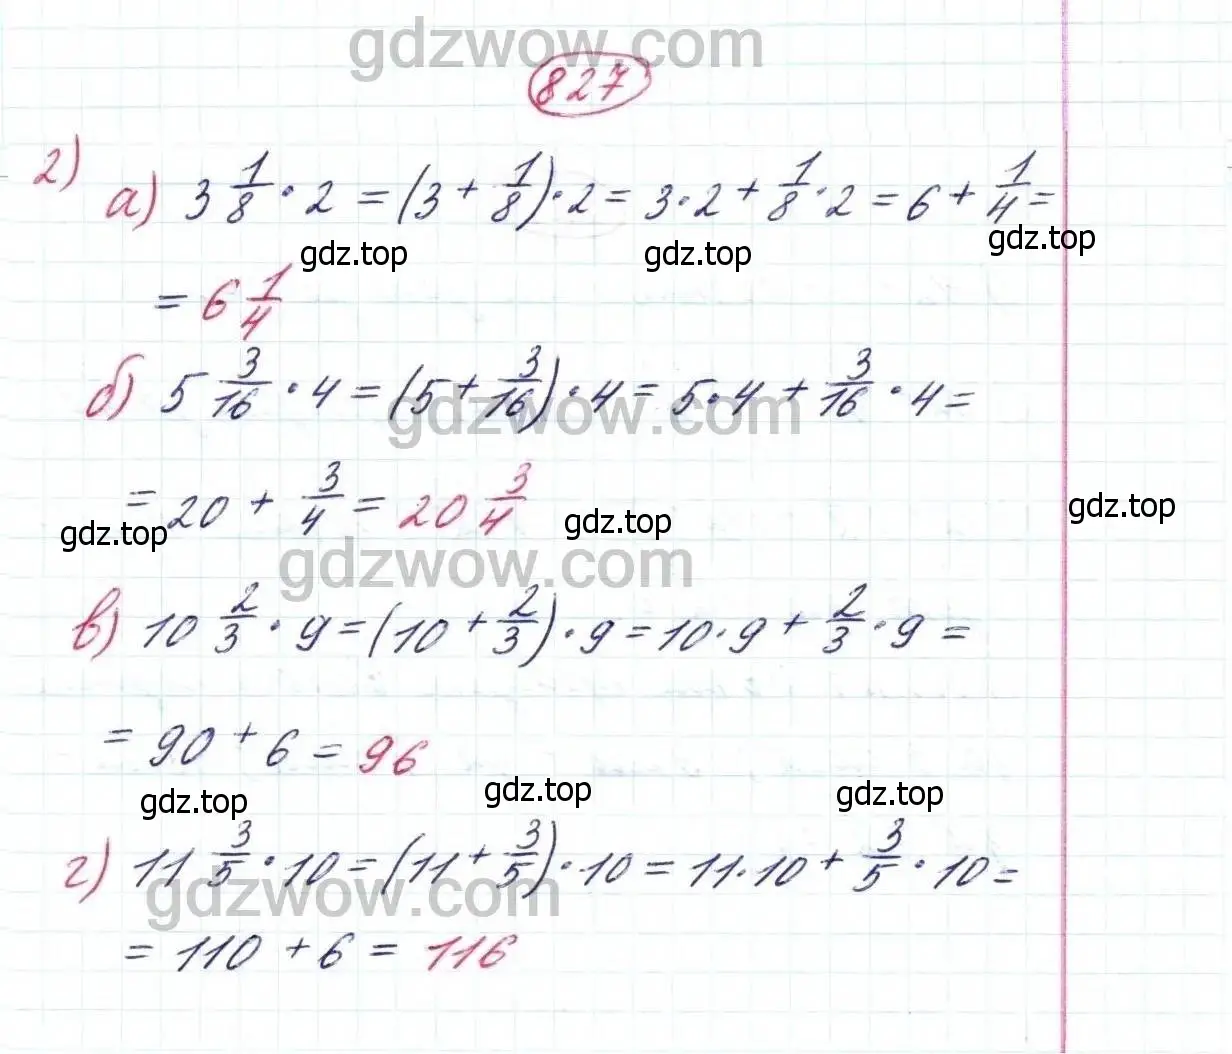 gdzwow.com
827
2)
а) 3 1/8 · 2 = (3 + 1/8) · 2 = 3 · 2 + 1/8 · 2 = 6 + 1/4 =
gdz.top gdz.top gdz.top
= 6 1/4
б) 5 3/16 · 4 = (5 + 3/16) · 4 = 5 · 4 + 3/16 · 4 =
gdzwow.com
= 20 + 3/4 = 20 3/4
gdz.top gdz.top gdz.top
gdzwow.com
в) 10 2/3 · 9 = (10 + 2/3) · 9 = 10 · 9 + 2/3 · 9 =
= 90 + 6 = 96
gdz.top gdz.top gdz.top
г) 11 3/5 · 10 = (11 + 3/5) · 10 = 11 · 10 + 3/5 · 10 =
gdzwow.com
= 110 + 6 = 116